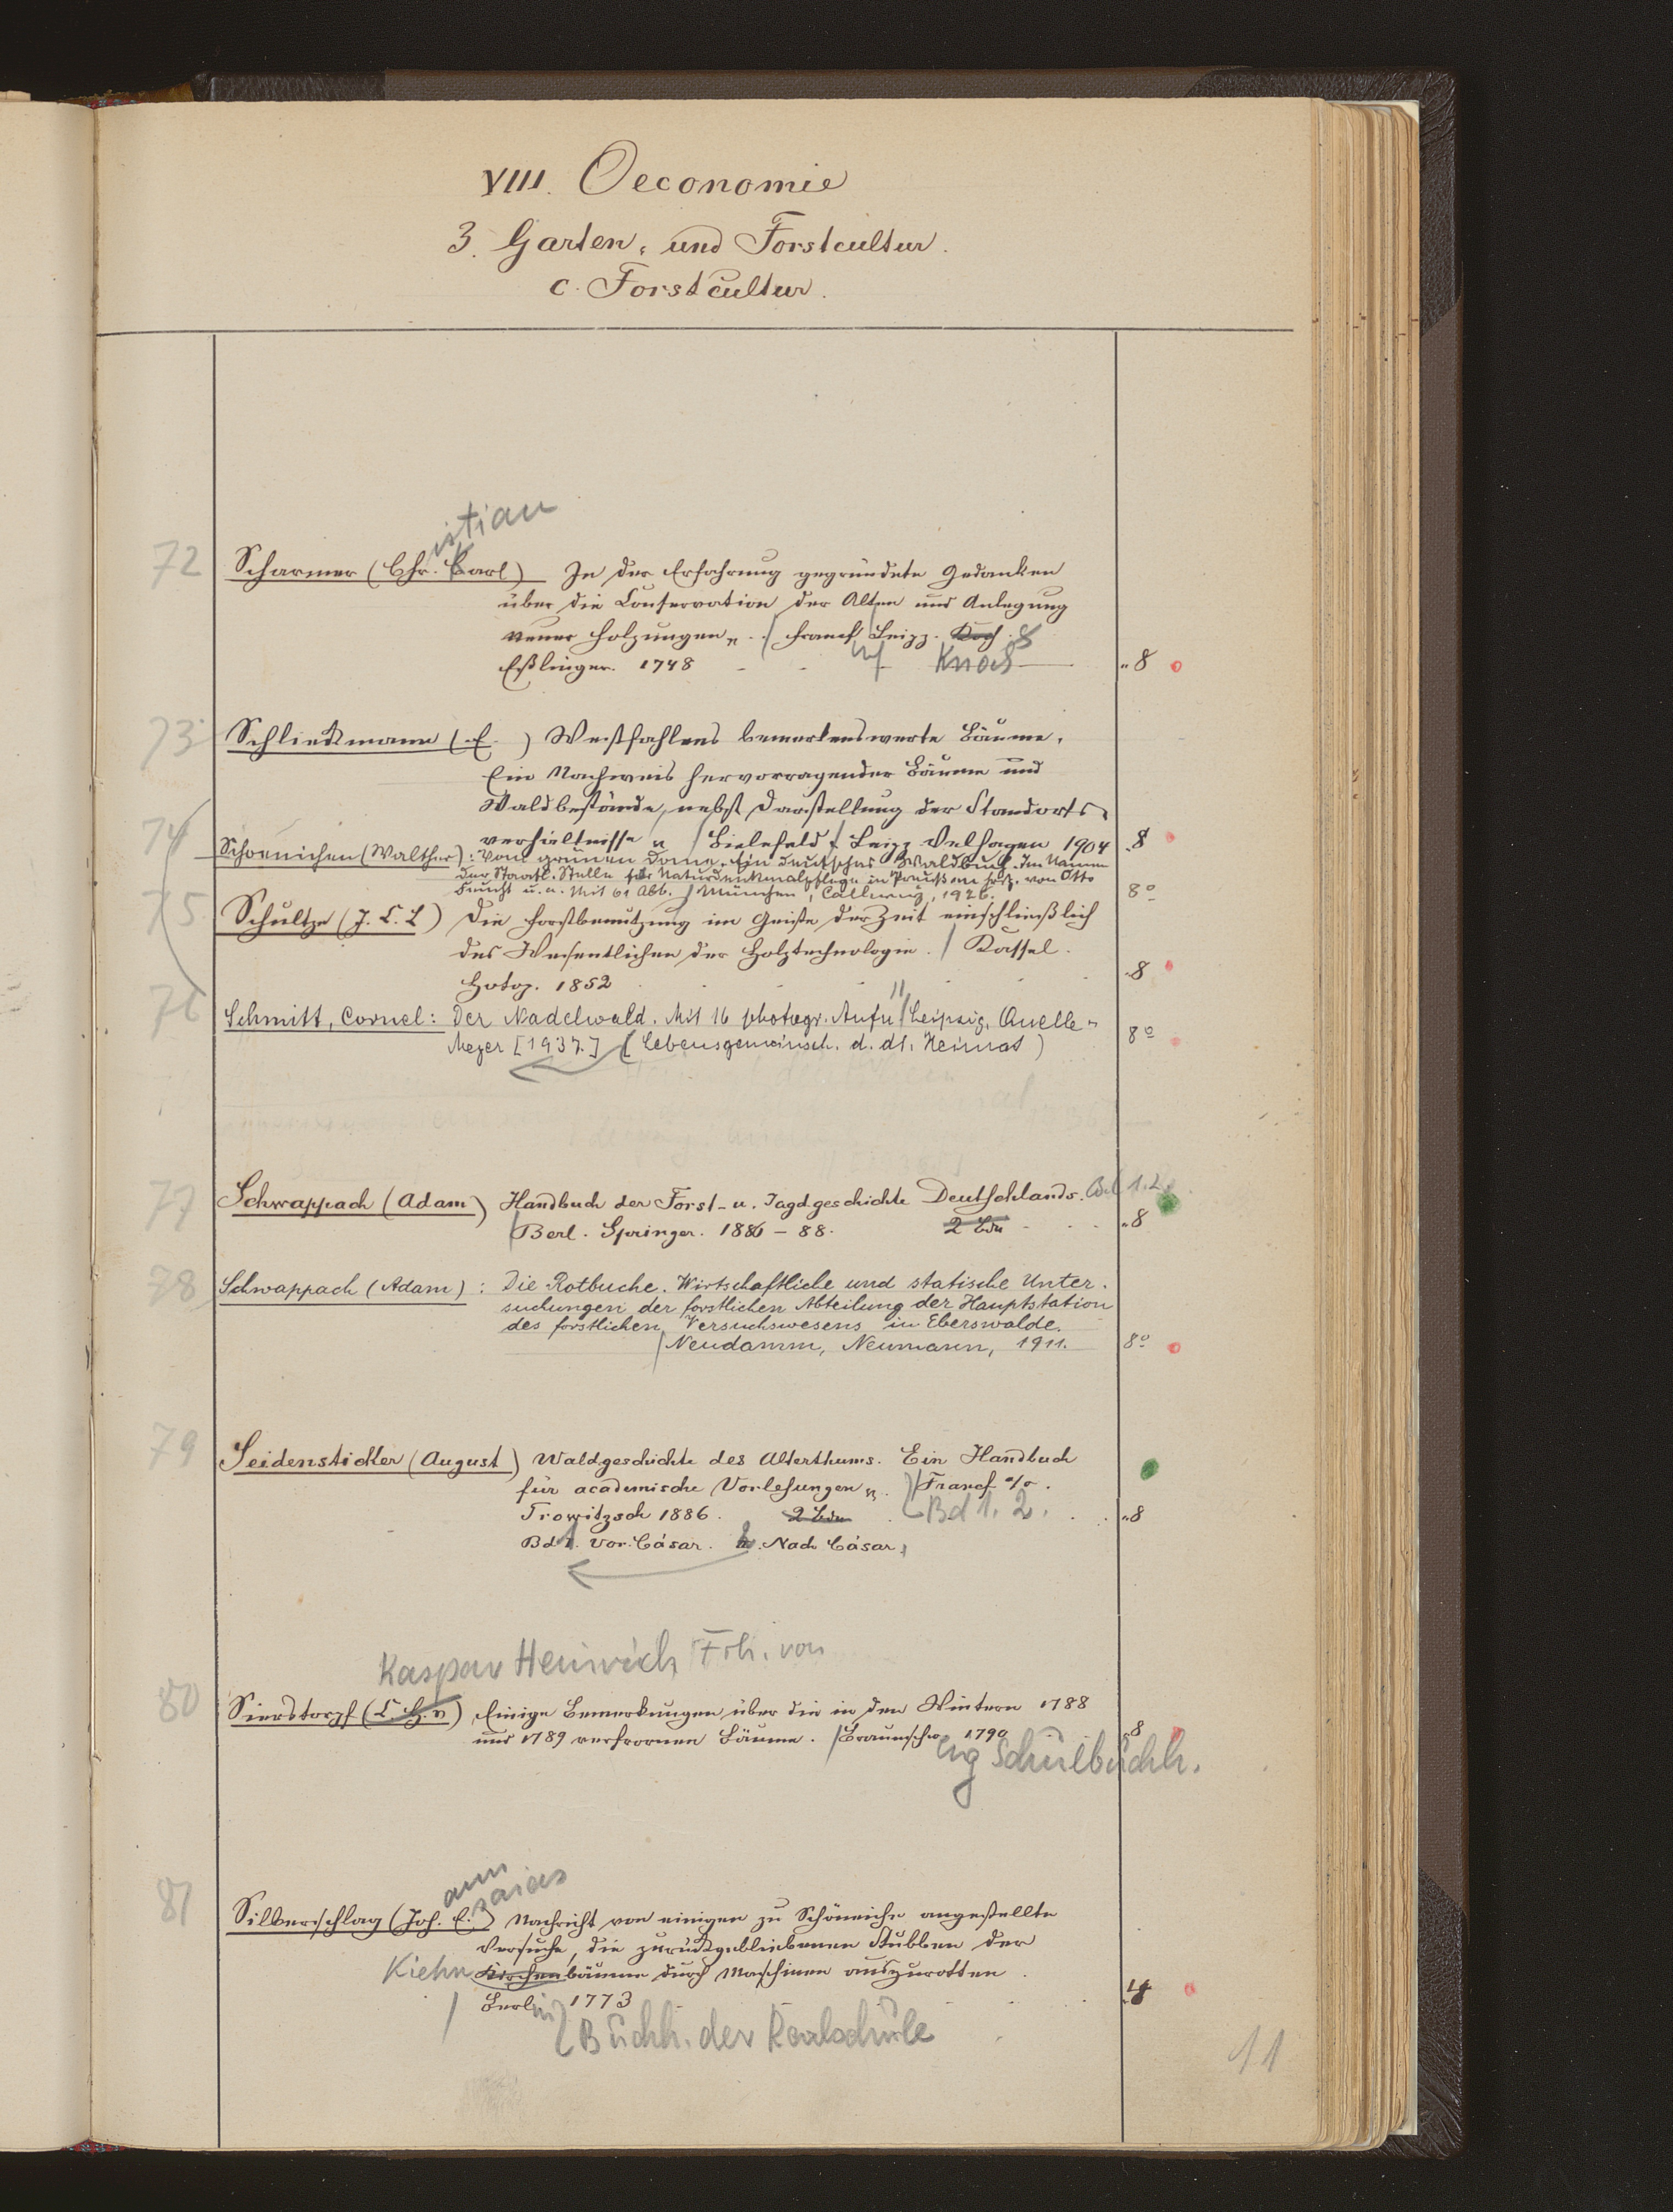 VIII. Oeconomie
3. Garten- und Forstcultur.
c. Forstcultur.
istian
72 Scharmer (Chr. Carl) In der Erfahrung gegründete Gedanken
über die Conservation der Alten und Anlegung
neuer Holzungen. Francf Leipz. Koch &
Eßlinger. 1748 Knoch 8
73 Schlieckmann (E. ) Westfahlens bemerkenswerte Bäume.
Ein Nachweis hervorragender Bäume und
Waldbestände, nebst Darstellung der Standorts-
verhältnisse / Bielefeld & Leipz Velhagen 1904 8
74 Schoenichen (Walther): Vom grünen Dome. Ein deutsches Waldbuch. Im Namen
der Staatl. Stelle für Naturdenkmalpflege in Preußen hrsg. von Otto
Feucht u. a. Mit 61 Abb. / München, Callwey, 1926. 8º
75 Schultze (J. C. L) Die Forstbenutzung im Geiste der Zeit einschließlich
des Wesentlichen der Holztechnologie. / Kassel.
Hotop. 1852 8
76 Schmitt, Cornel: Der Nadelwald. Mit 16 photogr. Aufn / Leipzig, Quelle -
Meyer [1937.] (Lebensgemeinsch. d. dt. Heimat) 8º
77 Schwappach (Adam) Handbuch der Forst- u. Jagdgeschichte Deutschlands. Bd 1.2.
Berl. Springer. 1886 - 88. 2 Bde 8
78 Schwappach (Adam): Die Rotbuche. Wirtschaftliche und statische Unter-
suchungen der forstlichen Abteilung der Hauptstation
des forstlichen Versuchswesens in Eberswalde.
/ Neudamm, Neumann, 1911. 8º
79 Seidensticker (August) Waldgeschichte des Alterthums. Ein Handbuch
für academische Vorlesungen. / Francf a/O.
Trowitzsch 1886. 2 Bde Bd 1. 2. 8
Bd 1. Vor Cäsar. 2. Nach Cäsar.
Kaspar Heinrich Frh. von
80 Sierstorpf (C. H. v) Einige Bemerkungen über die in den Wintern 1788
und 1789 verfrornen Bäume. / Braunschw 1790 8
eig Schulbuchh.
ann
saias
81 Silberschlag (Joh. E.) Nachricht von einigen zu Schöneiche angestellte
Versuche, die zurückgebliebenen Stubben der
Kiehn Kirchenbäume durch Maschinen auszurotten.
/ Berlin 1773 4
Buchh. der Realschule
11